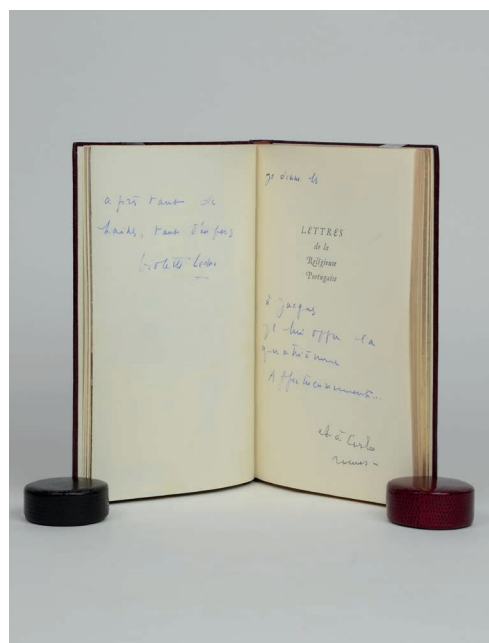 après tant de
haines, tant d'en fers
Violette Leduc
je donne les
LETTRES
de la
Religieuse
Portugaise
à Jacques
je lui offre la
quatrième
Affectueusement...
et à Carlo